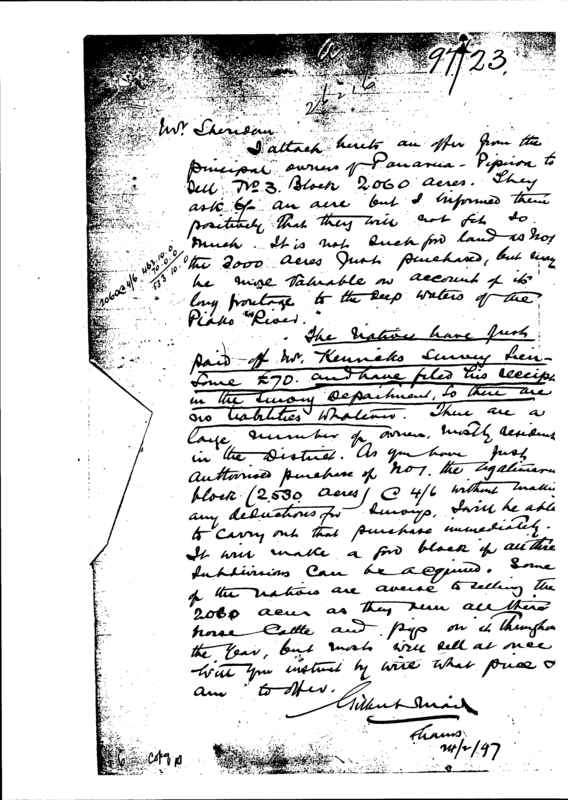 97/23.
Mr Sheridan
I attach hereto an offer from the
principal owners of Panarua - Pipiroa to
Sell No 3 Block 2060 acres. They
ask 6/- an acre but I informed them
positively that they will not get so
much. It is not such good land as No 1
the 2000 acres just purchased, but may
be more valuable on account of its
long frontage to the deep waters of the
Piako "River."
2060 @ 4/6 463.10.0
70.0.0
533.10.0
The Natives have just
paid off Mr. Kenricks Survey lien
Some £70. and have filed his receipt
in the Survey Department, So there are
no liabilities whatever. There are a
large number of owners, mostly resident
in the District. As you have just
authorised purchase of No 1. the
block (2530 acres) @ 4/6 without making
any deductions for Surveys, I will be able
to carry out that purchase immediately.
It will make a good block if all three
Subdivisions can be acquired. Some
of the natives are averse to selling the
2060 acres as they run all their
horse Cattle and pigs on it throughout
the Year, but most will sell at once
Will you instruct by wire what price I
am to offer.
Gilbert Mair
Thames
24/2/97